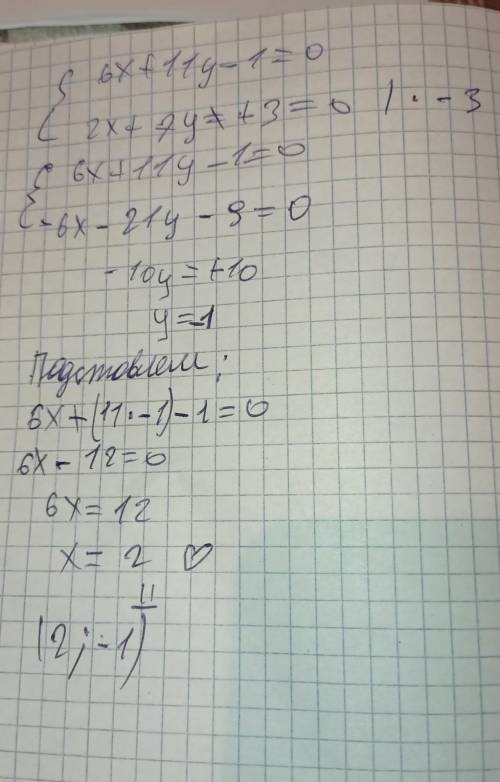 { 6x+11y-1=0
2x+7y+3=0 | · -3
{ 6x+11y-1=0
-6x-21y-9=0
-10y=+10
y=-1
Подставляем:
6x+(11·-1)-1=0
6x-12=0
6x=12
x=2 ♡
(2;-1)